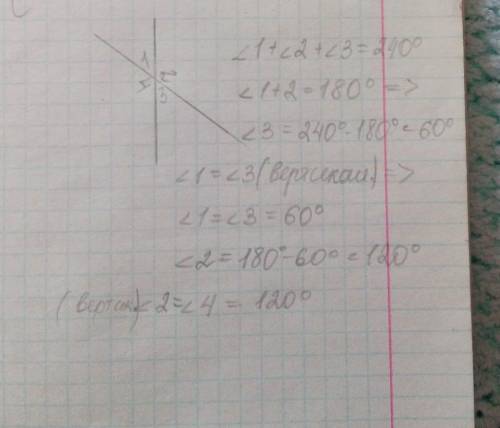 1 2
4 3
∠1+∠2+∠3=240°
∠1+2=180° =>
∠3=240°-180°=60°
∠1=∠3(вертикал) =>
∠1=∠3=60°
∠2=180°-60°=120°
(вертик)∠2=∠4=120°